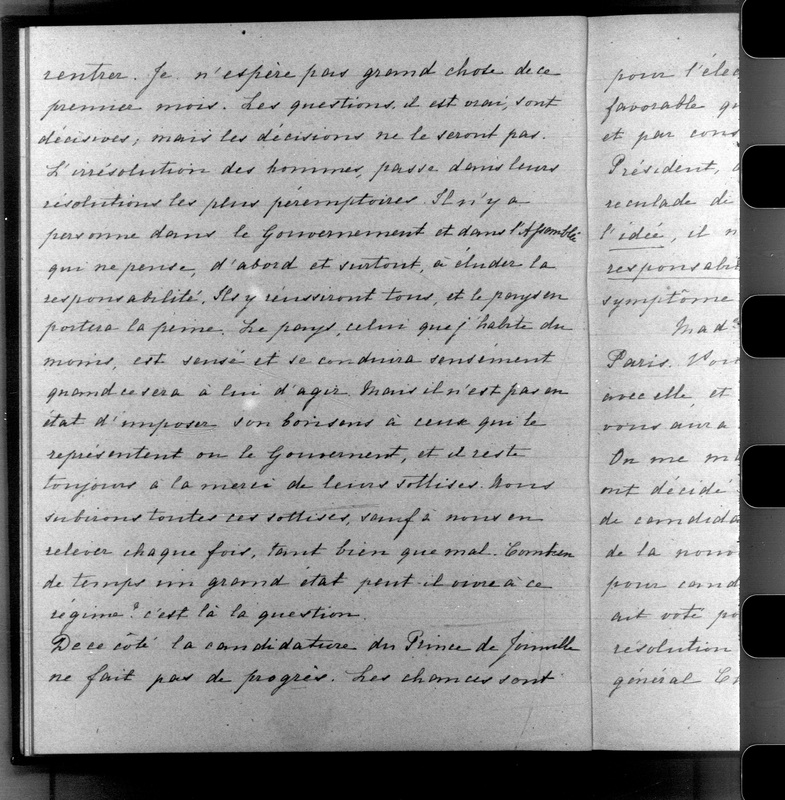 rentrer. Je n'espère pas grand chose de ce
premier mois. Les questions, il est vrai, sont
décisives ; mais les décisions ne le seront pas.
L'irrésolution des hommes, passe dans leurs
résolutions les plus péremptoires. Il n'y a
personne dans le Gouvernement et dans l'Assemblée
qui ne pense, d'abord et surtout, à éluder la
responsabilité. Ils y réussiront tous, et le pays en
portera la peine. Le pays, celui que j'habite du
moins, est sensé et se conduira sensément
quand ce sera à lui d'agir. Mais il n'est pas en
état d'imposer son bon sens à ceux qui le
représentent ou le Gouvernent, et il reste
toujours à la merci de leurs sottises. Nous
subirons toutes ces sottises, sauf à nous en
relever chaque fois, tant bien que mal. Combien
de temps un grand état peut-il vivre à ce
régime ? c'est là la question.
De ce côté la candidature du Prince de Joinville
ne fait pas de progrès. Les chances sont
pour l'élec
favorable
et par cons
Président,
reculade de
l'idée, il n
responsabi
symptôme
Mad
Paris.
avec elle, et
vous aura
On me
ont décidé
de candida
de la
pour cand
ait voté
résolution
général